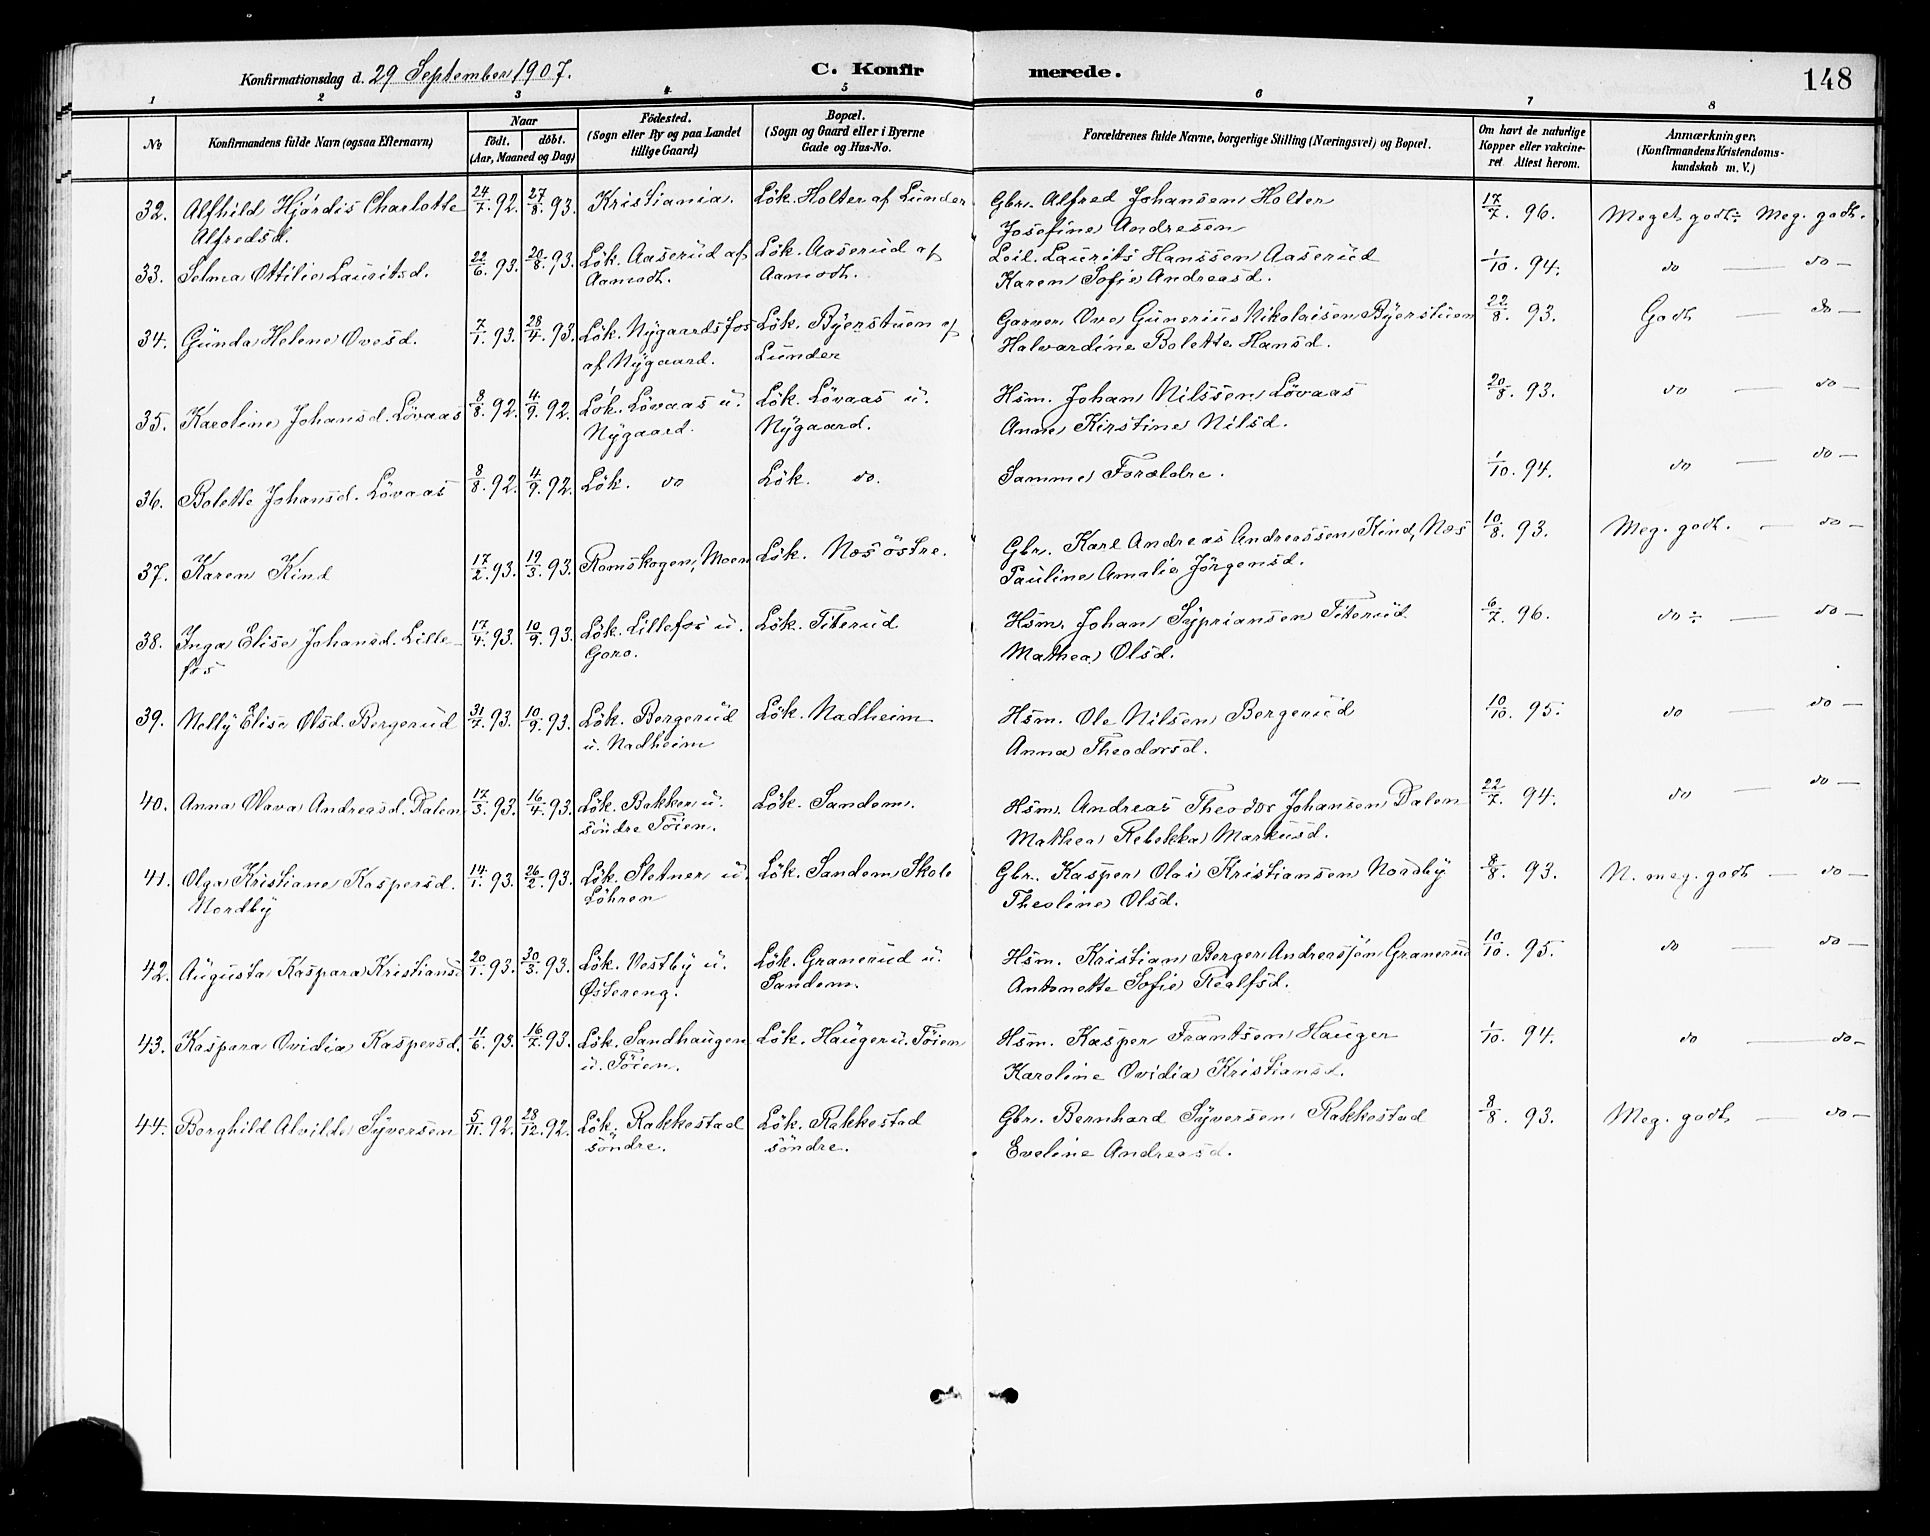 Konfirmationsdag d. 29 September 1907. C. Konfirmerede. 148
1 2 3 4 5 6 7 8
No
Konfirmandens fulde Navn (ogsaa Efternavn)
Naar
födt. döbt.
(Aar, Maaned og Dag)
Födested.
(Sogn eller By og paa Landet
tillige Gaard)
Bopæl.
(Sogn og Gaard eller i Byerne
Gade og Hus-No.
Forældrenes fulde Navne, borgerlige Stilling (Næringsvei) og Bopæl.
Om havt de naturlige
Kopper eller vakcine-
ret Attest herom.
Anmærkninger.
(Konfirmandens Kristendoms-
kundskab m. V.)
32. Alfhild Hjördis Charlotte 24/7.92. 27/8.93. Kristiania. Lök. Holter af Lunder Gbr. Alfred Johansen Holter 17/7. 96. Meget godt÷ Meg. godt.
Alfredsd. Josefine Andresen
33. Selma Ottilie Lauritsd. 22/6.93. 20/8.93. Lök. Aaserud af Lök. Aaserud af Leil. Laurits Hanssen Aaserud 1/10. 94. do — do —
Aamodt. Aamodt. Karen Sofie Andreasd.
34. Gunda Helene Ovesd. 7/1.93. 28/4.93. Lök. Nygaardsfos Lök. Byerstuen af Garver Ove Gunerius Nikolaisen Byerstuen 22/8. 93. Godt — do —
af Nygaard. Lunder Halvardine Bolette Hansd.
35. Karoline Johansd. Lövaas 8/8.92. 4/9.92. Lök. Lövaas u. Lök. Lövaas u. Hsm. Johan Nilssen Lövaas 20/8. 93. do — do —
Nygaard. Nygaard. Anne Kirstine Nilsd.
36. Bolette Johansd. Lövaas 8/8.92. 4/9.92. Lök. do Lök. do. Samme Forældre. 1/10. 94. do — do —
37. Karen Kind 17/2.93. 19/3.93. Romskogen, Moen Lök. Næs östre. Gbr. Karl Andreas Andreassen Kind, Næs 10/8. 93. Meg. godt. — do —
Pauline Amalie Jörgensd.
38. Inga Elise Johansd. Lille- 17/4.93. 10/9.93. Lök. Lillefos u. Lök. Titerud Hsm. Johan Sypriansen Titerud 6/7. 96. do ÷ — do —
fos Goro. Mathea Olsd.
39. Nelly Elise Olsd. Bergerud 31/7.93. 10/9.93. Lök. Bergerud Lök. Nadheim Hsm. Ole Nilsen Bergerud 10/10. 95. do — do —
u. Nadheim Anna Theodorsd.
40. Anna Olava Andreasd. Dalen 17/3.93. 16/4.93. Lök. Bakken u. Lök. Sandem. Hsm. Andreas Theodor Johansen Dalen 22/7. 94. do — do —
söndre Töien. Mathea Rebekka Markusd.
41. Olga Kristiane Kaspersd. 14/1.93. 26/2.93. Lök. Sletner u. Lök. Sandem Skole Gbr. Kasper Olai Kristiansen Nordby 8/8. 93. N. meg. godt — do —
Nordby Löhren Theoline Olsd.
42. Augusta Kaspara Kristiansd. 20/1.93. 30/3.93. Lök. Vestby u. Lök. Granerud u. Hsm. Kristian Berger Andreassön Granerud 10/10. 95. do — do —
Østereng. Sandem. Antonette Sofie Realfsd.
43. Kaspara Ovidia Kaspersd. 11/6.93. 16/7.93. Lök. Sandhaugen Lök. Hauger u. Töien Hsm. Kasper Frantsen Hauger 1/10. 94. do — do —
u. Töien. Karoline Ovidia Kristiansd.
44. Borghild Alvilde Syversen 5/11.92. 28/12.92. Lök. Rakkestad Lök. Rakkestad Gbr. Bernhard Syversen Rakkestad 8/8. 93. Meg. godt — do —
söndre. söndre. Eveline Andreasd.